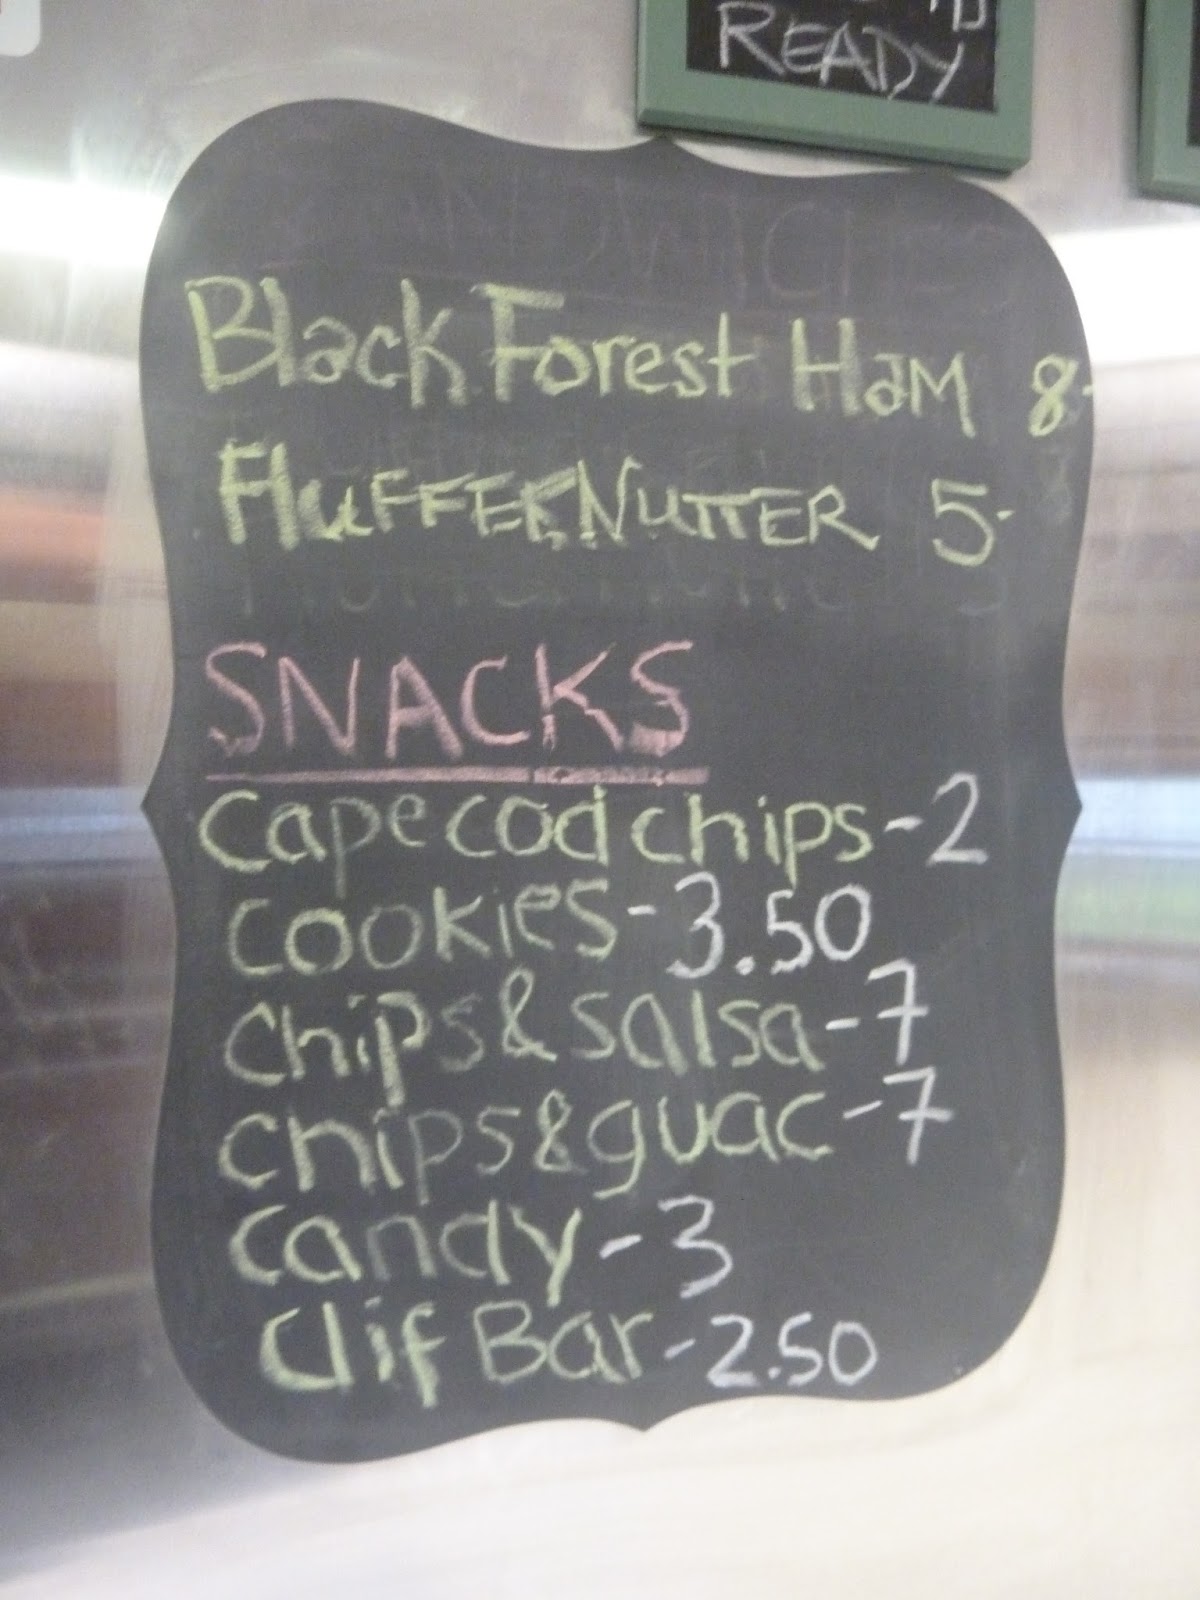 READY
Black Forest Ham 8-
FluFFERNUTTER 5-
SNACKS
Cape cod chips - 2
cookies - 3.50
chips & salsa - 7
chips & guac - 7
candy - 3
Clif Bar - 2.50